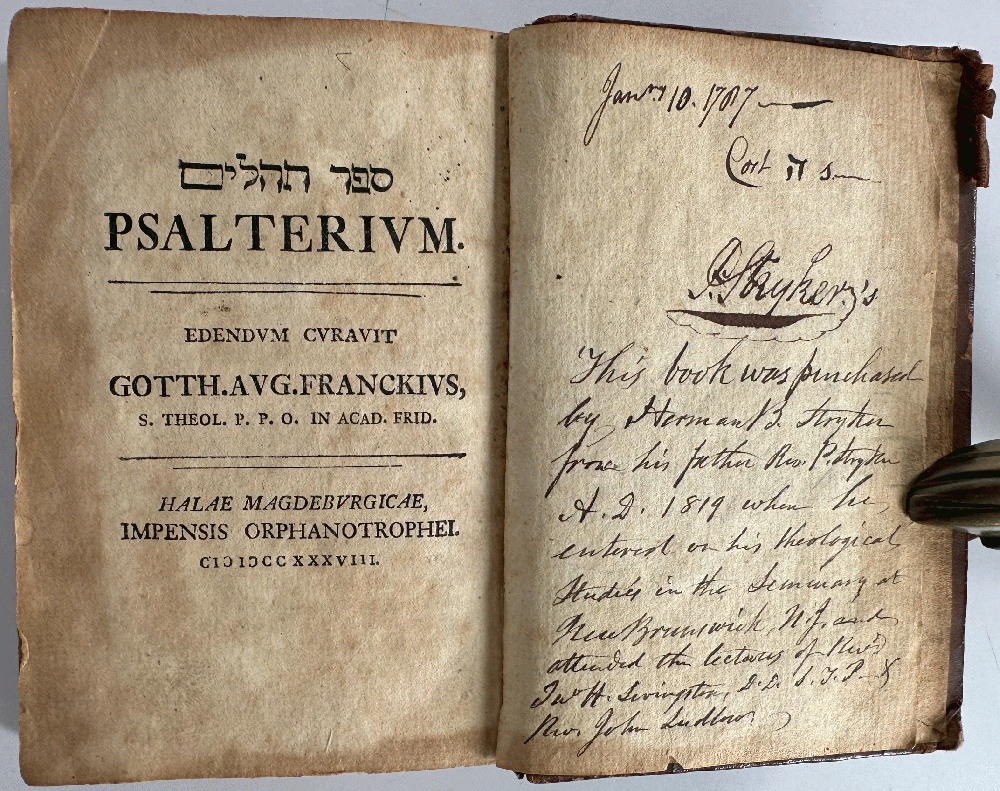 ספר תהלים
PSALTERIVM.
EDENDVM CVRAVIT
GOTTH.AVG.FRANCKIVS,
S. THEOL. P. P. O. IN ACAD. FRID.
HALAE MAGDEBVRGICAE,
IMPENSIS ORPHANOTROPHEI.
CIↃIↃCCXXXVIII.
Janry 10. 1787
Cost ה s
P. Stryker's
This book was purchased
by Herman B. Stryker
from his father Rev. P. Stryker
A. D. 1819 when he
entered on his theological
Studies in the Seminary at
New Brunswick, N.J. and
attended the lectures of Rev'd
Jno H. Livingston, D.D. S.T.P. &
Rev. John Ludlow